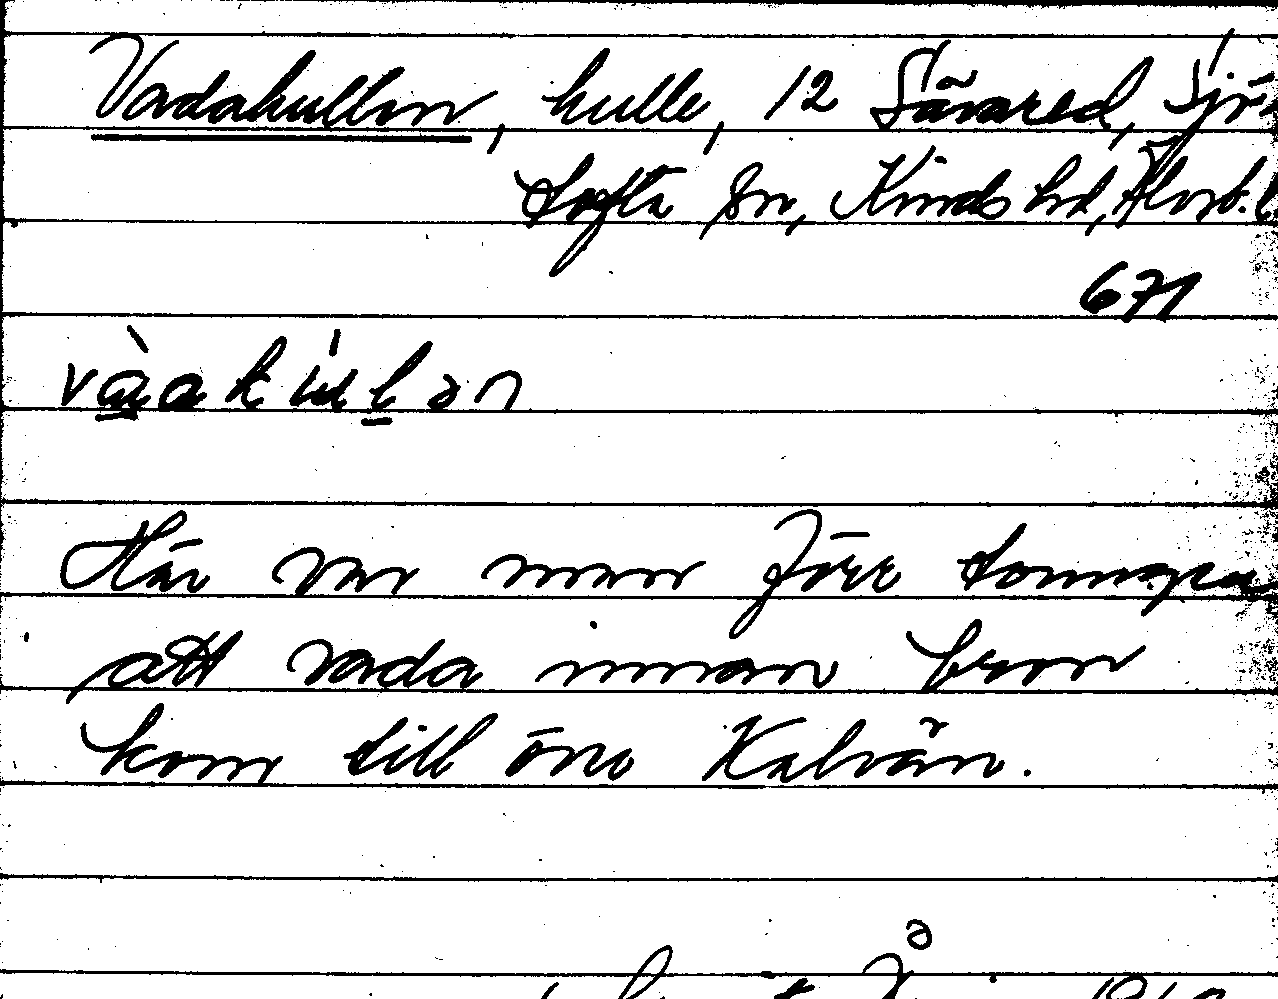 Vadakullen, kulle, 12 Sävared, Sjö-
tofta sn, Kinds hd, Älvsb. l
671
Här var man förr tvungen
att vada innan bron
kom till öno Kalvön.